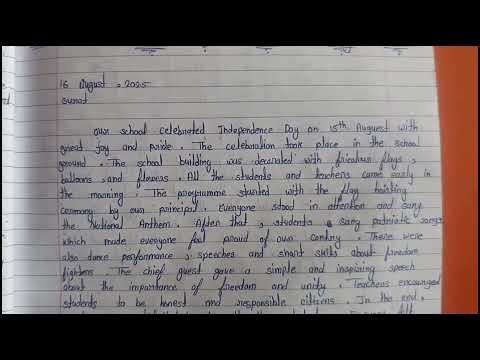 16 August , 2025
Surat
Our school celebrated Independence Day on 15th Auguest with
great joy and pride . The celebration took place in the school
ground . The school building was decorated with flags ,
balloons , and flowers . All the students and teachers came early in
the morning . The programme started with the flag hoisting
cermony by our principal . Everyone stood in attention and sang
the National Anthem . After that , students sang patriotic songs
which made everyone feel proud of our contry . There were
also dance performance , speeches and short skits about freedom
fighters . The chief guest gave a simple and inspiring speech
about the importance of freedom and unity . Teachers encouraged
students to be honest and responsible citizens . In the end ,